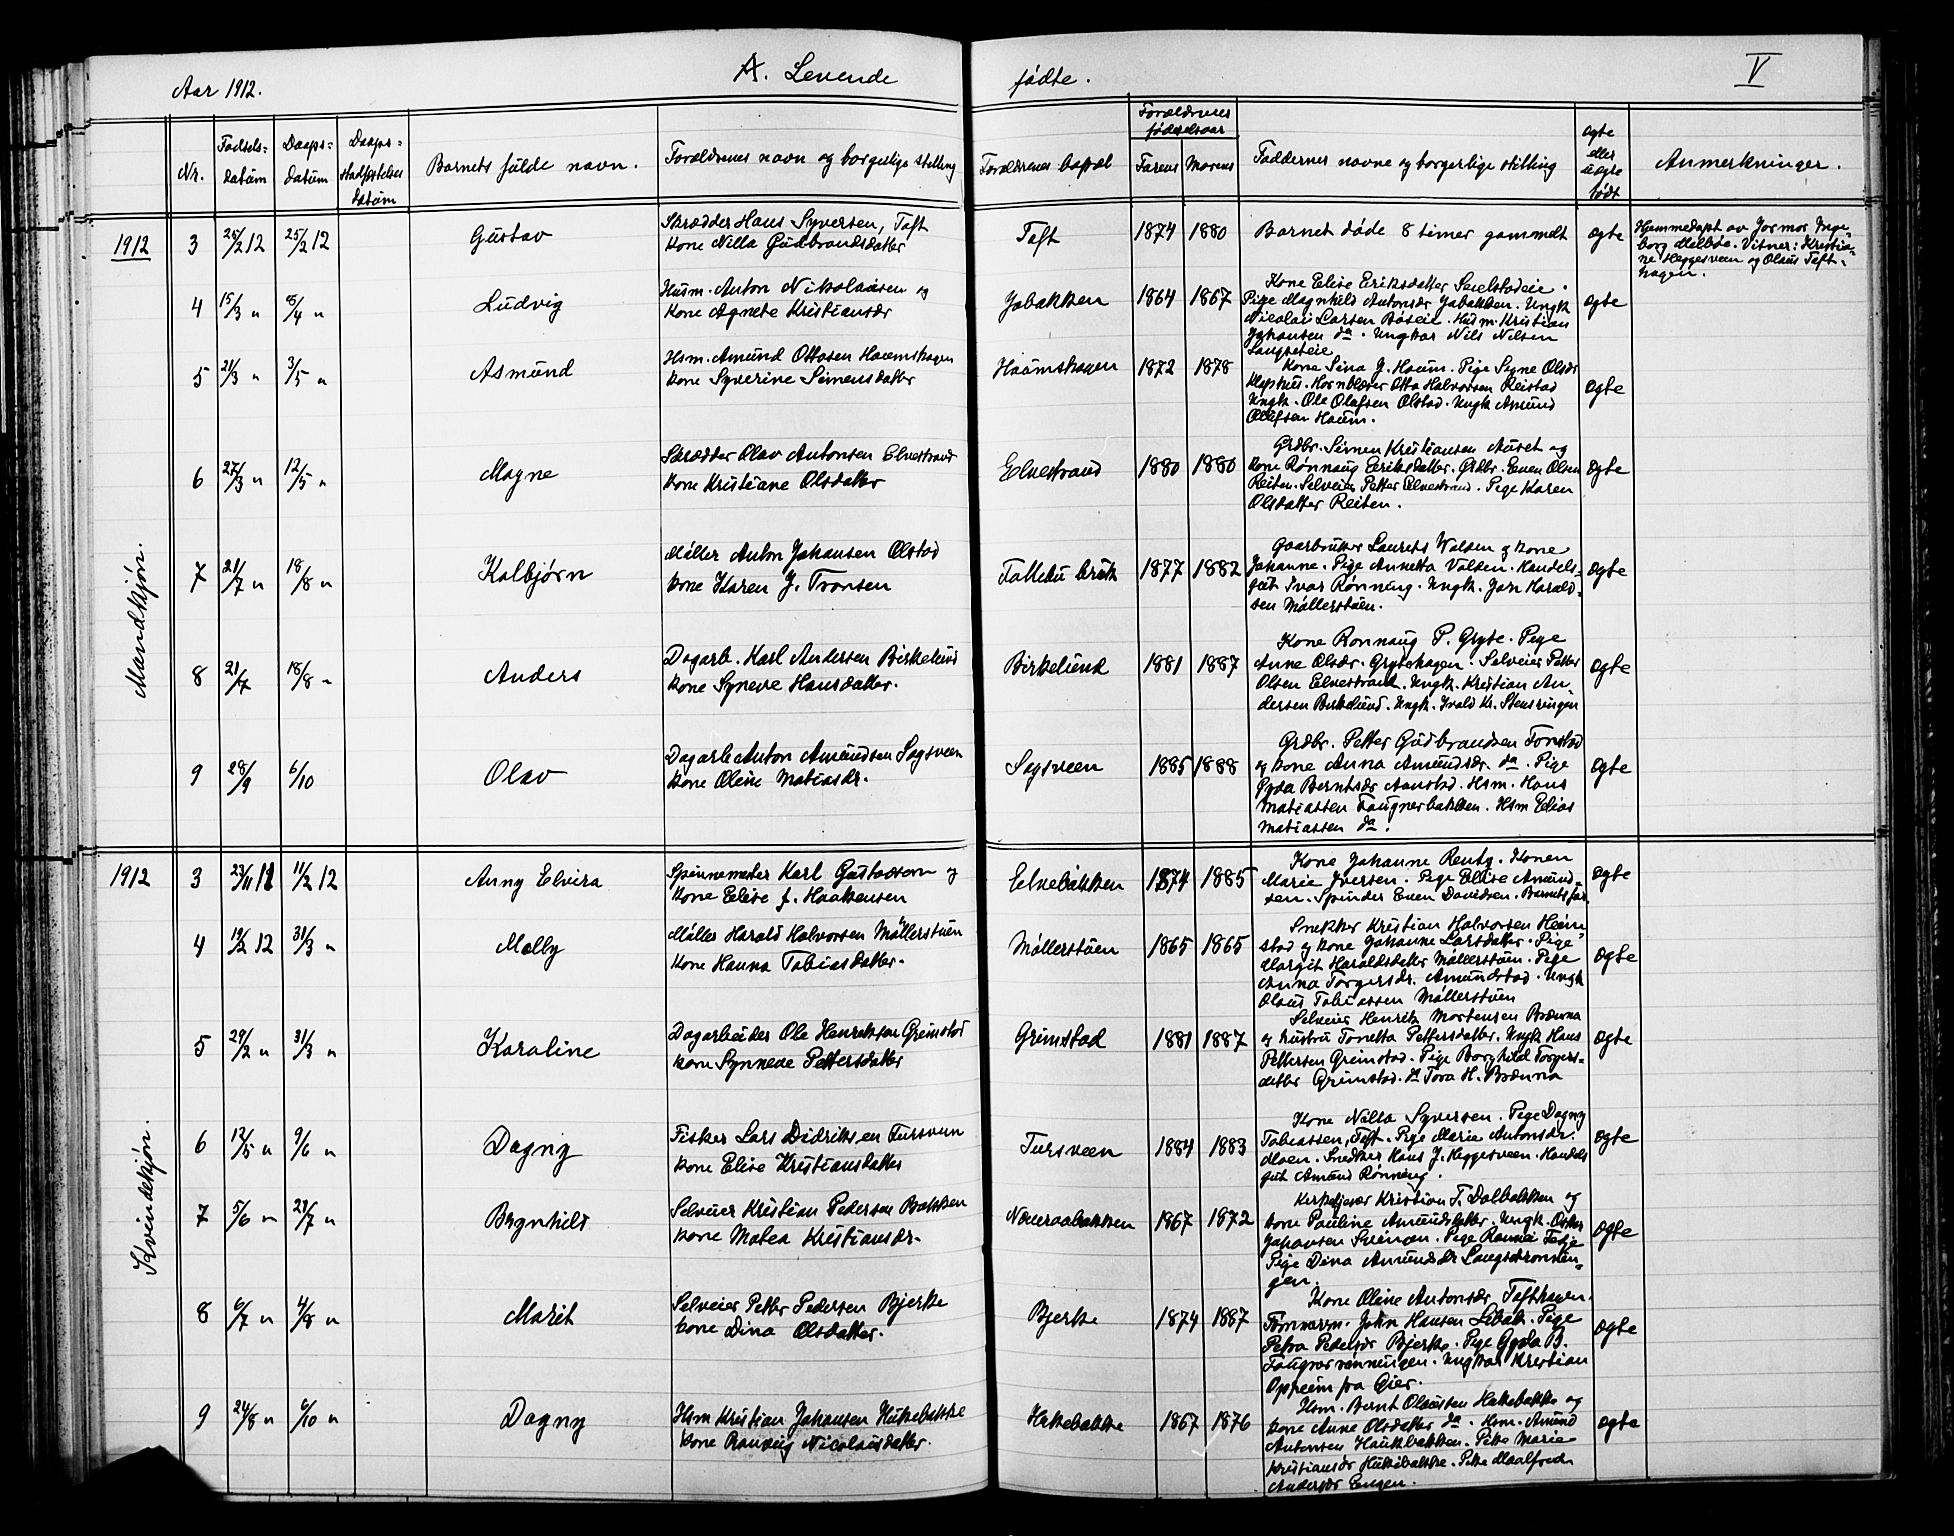 Aar 1912.
A. Levende
fødte.
V
Nr.
Fødsels-
datum
Daaps-
datum
Daaps-
stadfæstelses
datum
Barnets fulde navn.
Forældrenes navn og borgerlige stilling
Forældrenes bopæl
Forældrenes
fødselsaar
Farens Morens
Faddernes navne og borgerlige stilling
ægte
eller
uægte
født
Anmerkninger.
Mandkjøn.
1912 3 25/2 12 25/2 12 Gustav
Skrædder Hans Syversen, Toft
kone Nilla Gudbrandsdatter
Toft 1874 1880 Barnet døde 8 timer gammelt ægte
Hjemmedøpt av Jormor Inge-
borg Melbøe. Vitner: Kristia-
ne Heggesveen og Olaus Toft-
hagen.
4 15/3 " 8/4 " Ludvig
Husm. Anton Nikolaisen og
kone Agnete Kristiansdr
Jobakken 1864 1867
Kone Elise Eriksdatter
Pige Magnhild Antonsdr Jobakken. Ungk
Nicolai Larsen Husm. Kristian
Johansen do. Ungkar Nils Nilsen
ægte
5 21/3 " 3/5 " Asmund
Hsm. Amund Ottosen Haamshagen
kone Syverine Simensdatter
Haamshagen 1872 1878
Kone Sina J. Haum. Pige Signe Olsdr
Klophus. Hornblæser Otto Halvorsen Reistad
Ungk. Ole Olafsen Olstad. Ungk Amund
Olufsen Haum.
ægte
6 27/3 " 12/5 " Magne
Skrædder Olav Antonsen Elvestrand
kone Kristiane Olsdatter
Elvestrand 1880 1880
Grdbr. Simen Kristiansen Auset og
kone Rønnaug Eriksdatter. Grdbr. Even Olsen
Reiten. Selveier Petter Elvestrand. Pige Karen
Olsdatter Reiten.
ægte
7 21/7 " 18/8 " Kolbjørn
Møller Anton Johansen Olstad
kone Karen J. Tronsen
Follebu bruk 1877 1882
Gaarbruker Laurits Volden og kone
Johanne. Pige Annetta Volden. Handels-
gut Ivar Rønning. Ungk. Jon Harald-
sen Møllerstuen.
ægte
8 21/7 18/8 " Anders
Dagarb. Karl Andersen Birkelund
kone Syneve Hansdatter.
Birkelund 1881 1887
Kone Rønnaug P. Gryte. Pige
Anne Olsdr. Grytehagen. Selveier Petter
Olsen Elvestrand. Ungk. Kristian An-
dersen Birkelund. Ungk.
ægte
9 28/9 6/10 Olav
Dagarb Anton Amundsen Sagsveen
kone Oline Matiasdr.
Sagsveen 1885 1888
Grdbr. Petter Gudbrandsen Tonstad
og kone Anna Amundsdr. do. Pige
Gyda Berntsdr Aanstad. Hsm. Hans
Matiassen Faugnerbakken. Hsm Elias
Matiassen do.
ægte
Kvindekjøn.
1912 3 23/11 11 11/2 12 Anny Elvira
Spinnemester Karl Gustavsen og
kone Elise f. Haakensen
Elvebakken 1874 1885
Kone Johanne Rentz. Konen
Marie Iversen. Pige Elise Amund-
sen. Spinder Even Davidsen. Barnets far
ægte
4 19/2 12 31/3 " Molly
Møller Harald Halvorsen Møllerstuen
kone Hanna Tobiasdatter.
Møllerstuen 1865 1865
Snekker Kristian Halvorsen
stad og kone Johanne Larsdatter. Pige
Margit Haraldsdatter Møllerstuen. Pige
Anna Torgersdr. Amundstad. Ungk
Olaus Tobiassen Møllerstuen
ægte
5 29/2 " 31/3 " Karoline
Dagarbeider Ole Henriksen Grimstad
kone Synneve Pettersdatter
Grimstad 1881 1887
Selveier Henrik Mortensen Brænna
og hustru Tonetta Pettersdatter. Ungk Hans
Pettersen Grimstad. Pige Borghild Torgers-
datter Grimstad. do Tora H. Brænna
ægte
6 12/5 " 9/6 " Dagny
Fisker Lars Didriksen Tursveen
kone Elise Kristiansdatter
Tursveen 1884 1883
Kone Nilla Syversen. Pige Dagny
Tobiassen, Toft. Pige Marie Antonsdr.
Moen. Snedker Hans J. Heggesveen. Handels
gut Amund Rønning.
ægte
7 5/6 " 28/7 " Brynhild
Selveier Kristian Pedersen Bakken
kone Matea Kristiansdr.
Noveraabakken 1867 1872
Kirketjener Kristian T. Dalbakken og
kone Pauline Amundsdatter. Ungk. Oskar
Johansen
Pige Dina Amundsdr
gen.
ægte
8 6/7 " 4/8 " Marit
Selveier Petter Pedersen Bjerke
kone Dina Olsdatter.
Bjerke 1874 1887
Kone Oline Antonsdr Tofthagen.
John Hansen Pige
Petra Pedersdr Bjerke. Pige Gyda B.
Ungkar Kristian
fra Øier.
ægte
9 24/8 " 6/10 " Dagny
Hsm Kristian Johansen Hukebakke
kone Rønnaug Nicolaisdatter.
Hukebakke 1867 1876
Hsm. Bernt Olausen Hukebakke og
kone Anne Olsdatter do. Hsm. Amund
Antonsen Haukbakken. Pike Marie
Kristiansdr Hukebakke. Pike
Andersdr Engen.
ægte